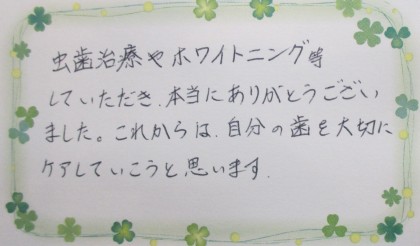 虫歯治療やホワイトニング等
していただき、本当にありがとうござい
ました。これからは、自分の歯を大切に
ケアしていこうと思います.